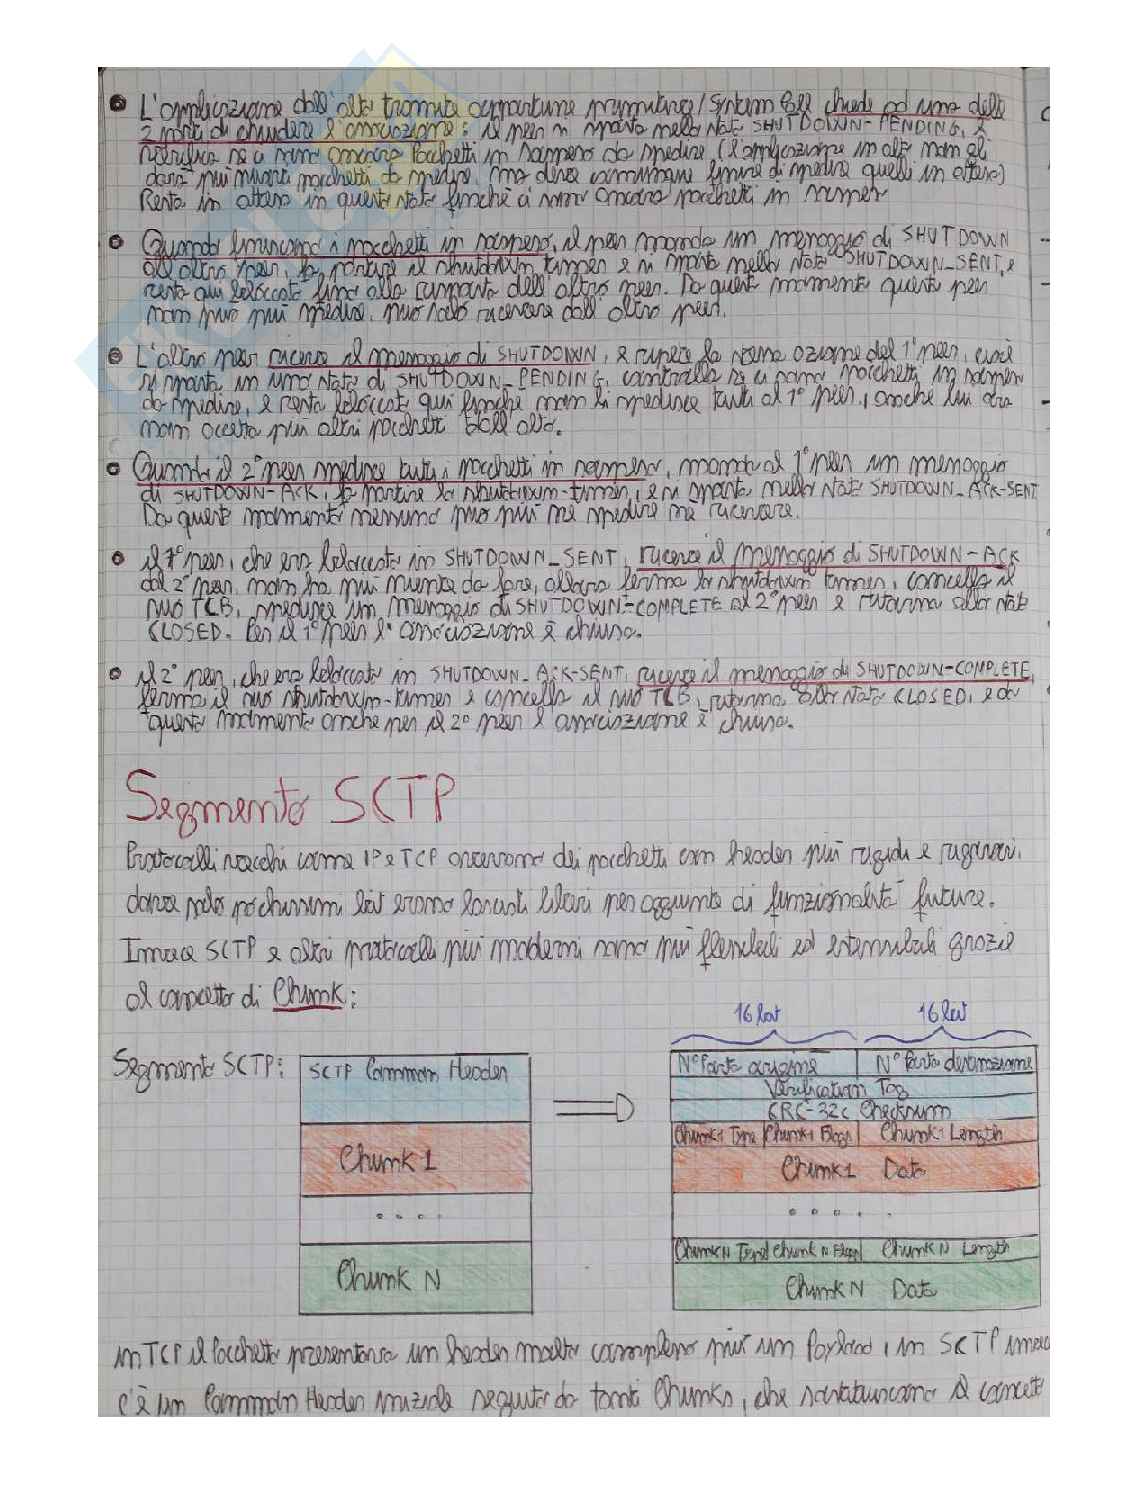 L'applicazione dall'alto tramite opportune primitive/System Call chiede ad una delle
2 parti di chiudere l'associazione: il peer si sposta nello stato SHUTDOWN-PENDING, e
verifica se ci sono ancora Pacchetti in sospeso da spedire (l'applicazione in alto non gli
darà più nuovi pacchetti da spedire, ma deve comunque finire di spedire quelli in attesa)
Resta in attesa in questo stato finchè ci sono ancora pacchetti in sospeso
Quando finiscono i pacchetti in sospeso, il peer manda un messaggio di SHUTDOWN
all'altro peer, fa partire il shutdown timer e si sposta nello stato SHUTDOWN_SENT, e
resta qui bloccato fino alla risposta dell'altro peer. Da questo momento questo peer
non può più spedire, può solo ricevere dall'altro peer.
L'altro peer riceve il messaggio di SHUTDOWN, e ripete la stessa azione del 1° peer, cioè
si sposta in uno stato di SHUTDOWN_PENDING, controlla se ci sono pacchetti in sospeso
da spedire, e resta bloccato qui finchè non li spedisce tutti al 1° peer, anche lui ora
non accetta più altri pacchetti dall'alto.
Quando il 2° peer spedisce tutti i pacchetti in sospeso, manda al 1° peer un messaggio
di SHUTDOWN-ACK, fa partire lo shutdown-timer, e si sposta nello stato SHUTDOWN_ACK-SENT
Da questo momento nessuno può più nè spedire nè ricevere.
il 1° peer, che era bloccato in SHUTDOWN_SENT, riceve il messaggio di SHUTDOWN-ACK
dal 2° peer, non ha più niente da fare, allora ferma lo shutdown timer, cancella il
suo TCB, spedisce un messaggio di SHUTDOWN-COMPLETE al 2° peer e ritorna allo stato
CLOSED. Per il 1° peer l'associazione è chiusa.
il 2° peer, che era bloccato in SHUTDOWN_ACK-SENT, riceve il messaggio di SHUTDOWN-COMPLETE,
ferma il suo shutdown-timer e cancella il suo TCB, ritorna allo stato CLOSED, e da
questo momento anche per il 2° peer l'associazione è chiusa.
Segmento SCTP
Protocolli vecchi come IP e TCP avevano dei pacchetti con header più rigidi e rigorosi,
dove solo pochissimi bit erano lasciati liberi per aggiunta di funzionalità future.
Invece SCTP e altri protocolli più moderni sono più flessibili ed estensibili grazie
al concetto di Chunk:
16 bit 16 bit
Segmento SCTP:
SCTP Common Header
Chunk 1
. . . .
Chunk N
N° Porta origine N° Porta destinazione
Verification Tag
CRC-32c Checksum
Chunk1 Type Chunk1 Flags Chunk1 Length
Chunk1 Data
. . . . .
Chunk N Type Chunk N Flags Chunk N Length
Chunk N Data
in TCP il Pacchetto presentava un header molto complesso più un Payload, in SCTP invece
c'è un Common Header iniziale seguito da tanti Chunks, che sostituiscono il concetto